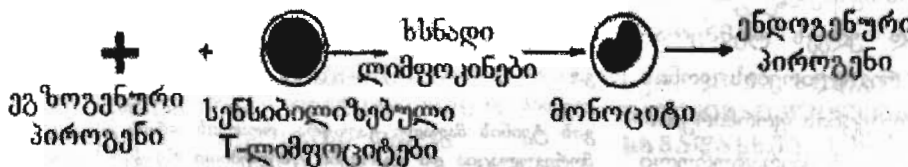 ეგზოგენური
პიროგენი
+
სენსიბილიზებული
T-ლიმფოციტები
ხსნადი
ლიმფოკინები
მონოციტი
ენდოგენური
პიროგენი